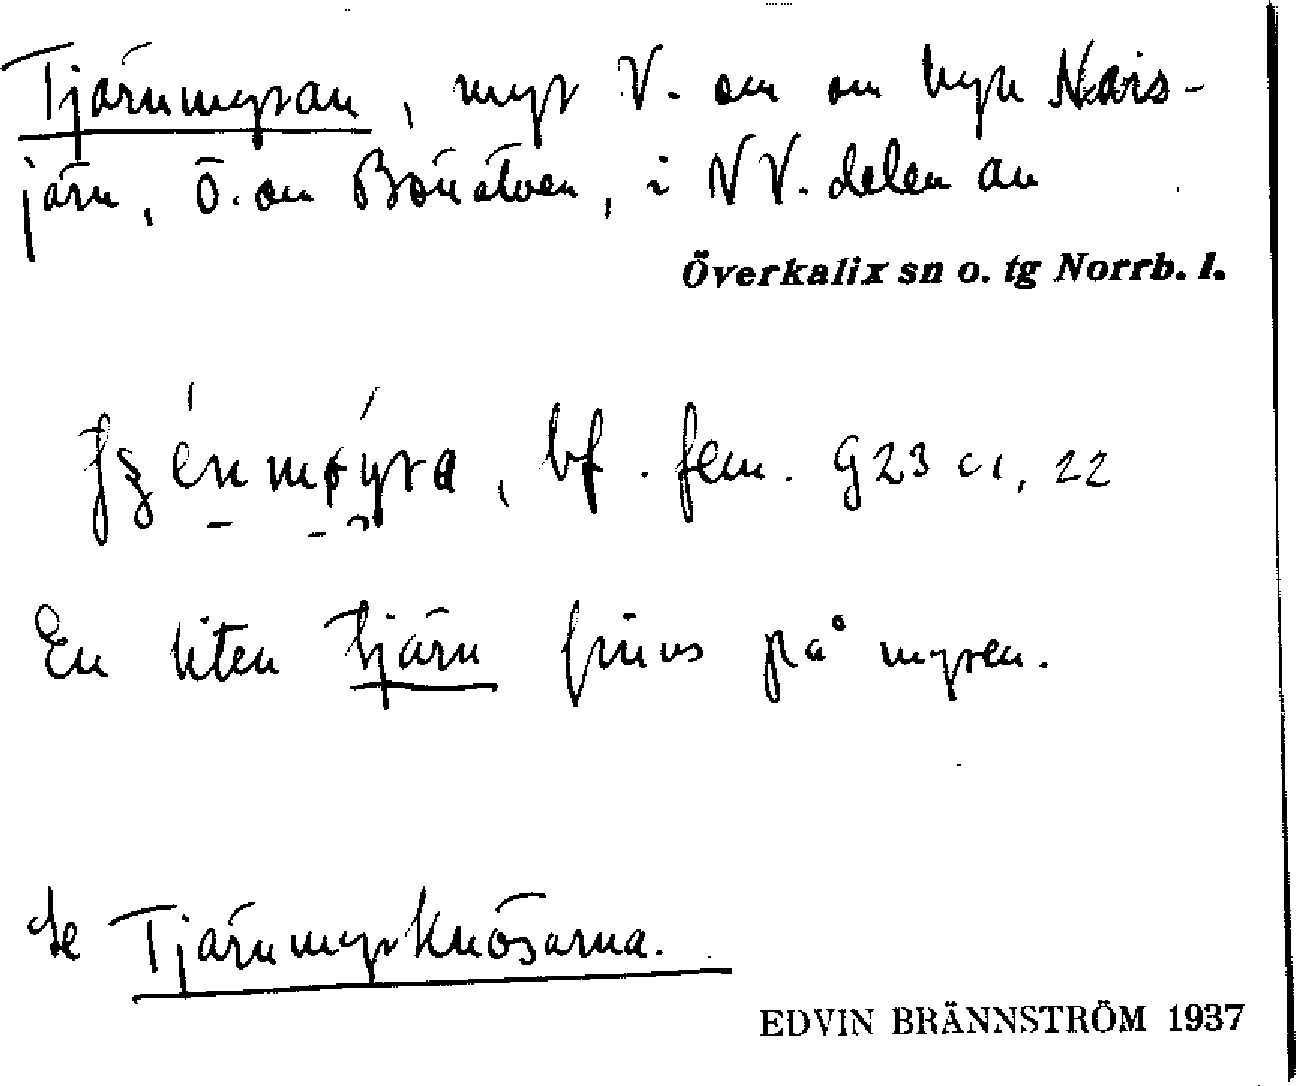 Tjärnmyran, myr V. om om byn Nais-
järn, Ö. om Bönälven, i NV. delen av
Överkalix sn o. tg Norrb. l.
bf. fem. G23 c1, 22
En liten tjärn finns på myren.
Se Tjärnmyrknösarna.
EDVIN BRÄNNSTRÖM 1937